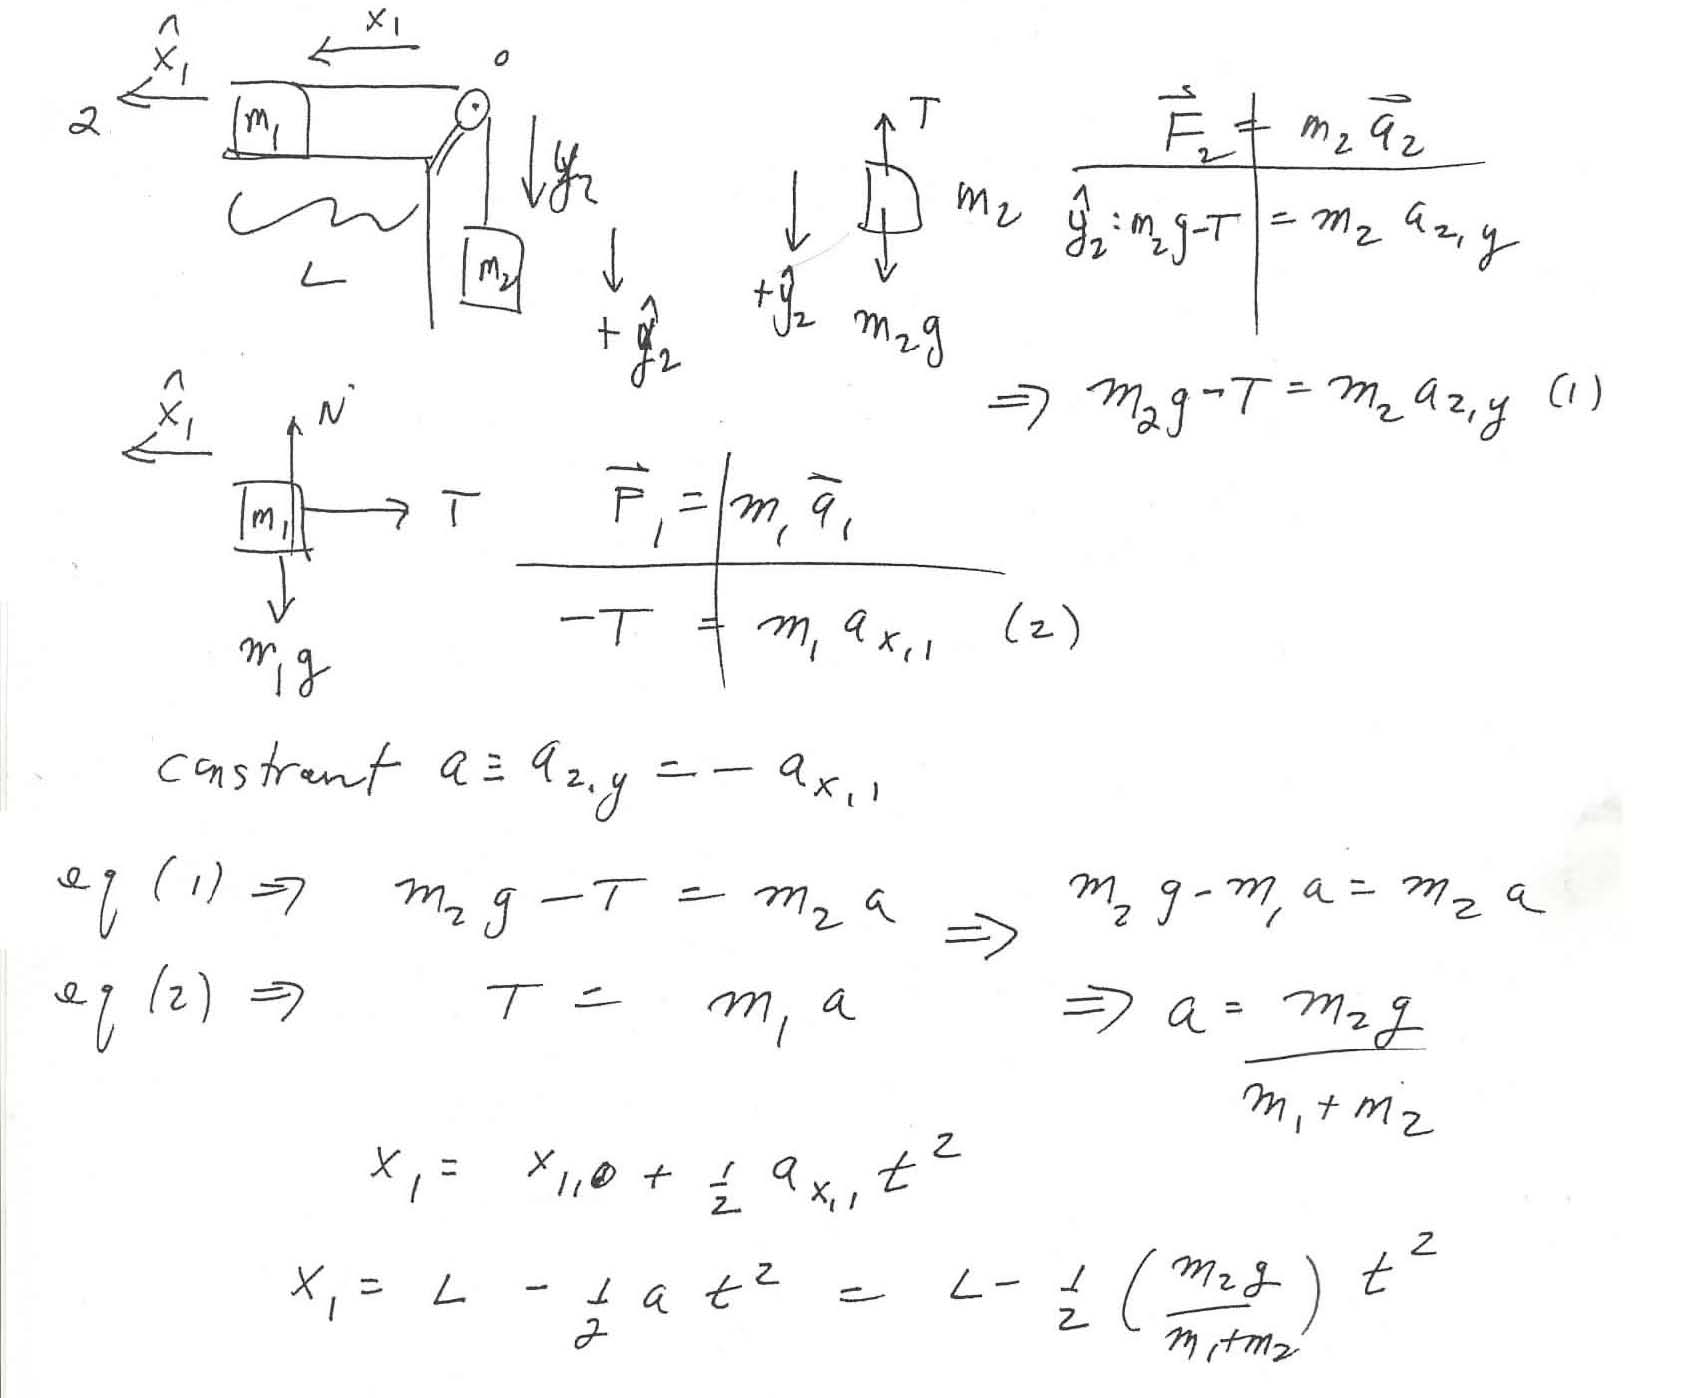 x̂₁ x₁ 0
2 m₁ y₂
L m₂ + ŷ₂
T
m₂
+ŷ₂ m₂g
F⃗₂ = m₂ a⃗₂
ŷ₂ : m₂g-T = m₂ a₂,y
⇒ m₂g-T = m₂ a₂,y (1)
x̂₁ N
m₁ T
m₁g
F⃗₁ = m₁ a⃗₁
-T = m₁ aₓ,₁ (2)
constraint a ≡ a₂,y = - aₓ,₁
eq (1) ⇒ m₂g - T = m₂ a ⇒ m₂ g - m₁ a = m₂ a
eq (2) ⇒ T = m₁ a ⇒ a = m₂g / m₁+m₂
x₁ = x₁,₀ + 1/2 aₓ,₁ t²
x₁ = L - 1/2 a t² = L - 1/2 (m₂g / m₁+m₂) t²